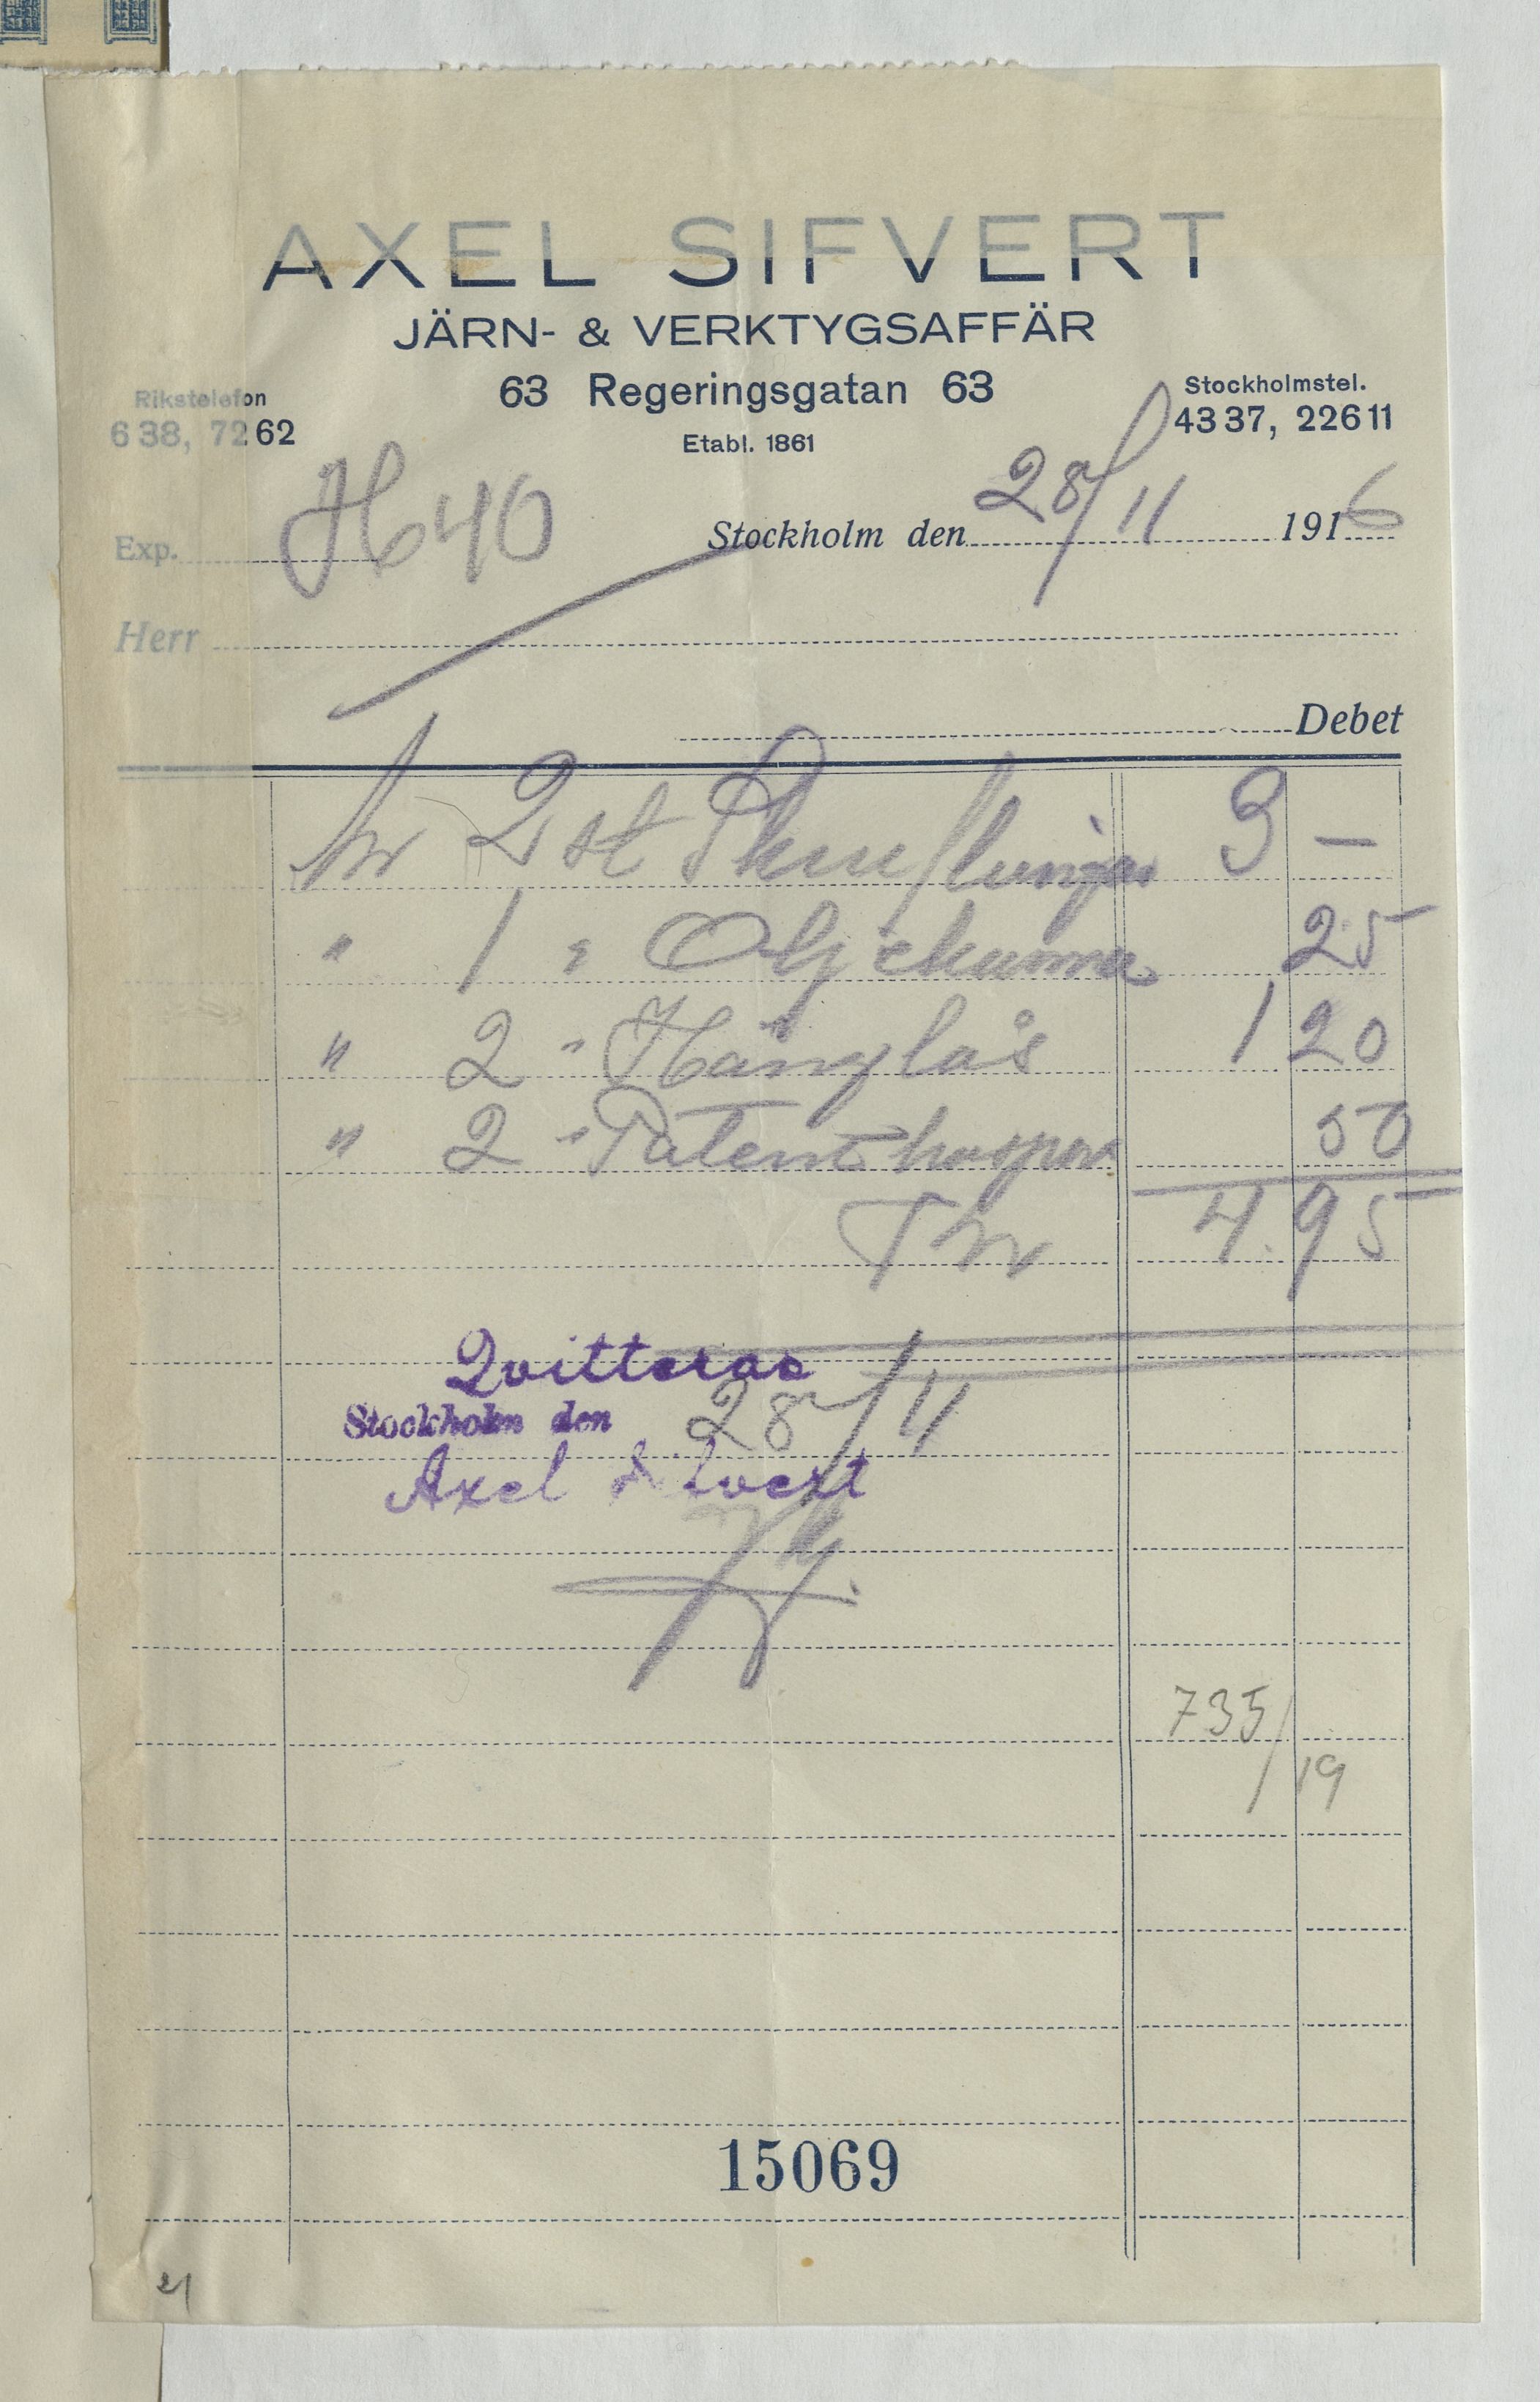 AXEL SIFVERT
JÄRN- & VERKTYGSAFFÄR
63 Regeringsgatan 63
Etabl. 1861
Rikstelefon
6 38, 72 62
Stockholmstel.
43 37, 226 11
Exp. H 40
Stockholm den 28/11 1916
Herr
Debet
2 st 3 —
" 1 " Oljekanna 25
" 2 " Hänglås 1 20
" 2 " Patent haspar 50
4.95
Qvitteras
Stockholm den 28/11
Axel Sifvert
735/19
15069
21